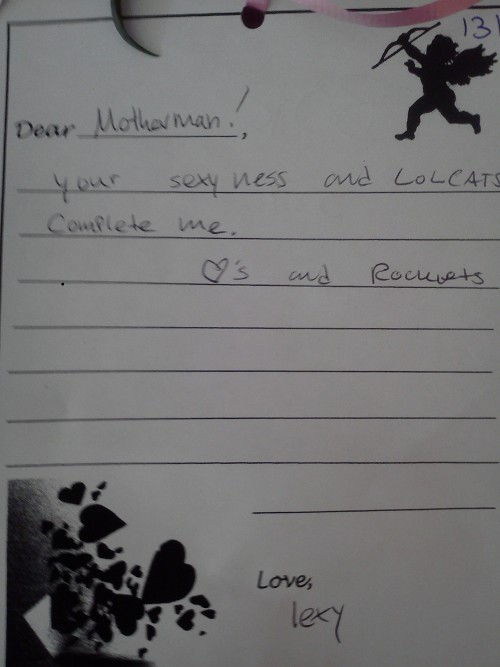 131
Dear Motherman!,
your sexyness and LOLCATS
Complete me.
♡'s and Rockets
Love,
lexy